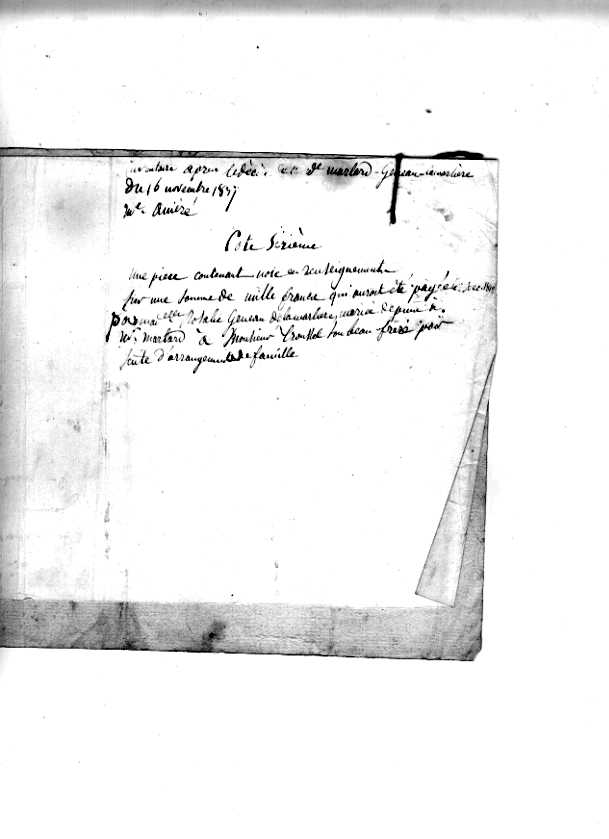 inventaire apres le décès de Me martard - Geneau-lamarliere
du 16 novembre 1837
Me Amiré
Cote Sixième
une piece contenant note en renseignement
sur une somme de mille francs qui auroit été payée en
par mad elle Rosalie Geneau de lamarliere, mariée depuis à
Mr. Martard à Monsieur son beau frère par
suite d'arrangement de famille